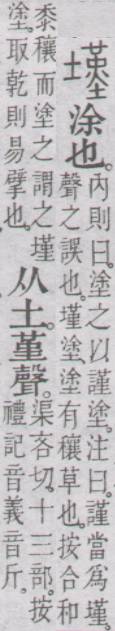 墐涂也。
內則曰。塗之以謹塗。注曰。謹當爲墐。
聲之誤也。墐塗塗有穰草也。按合和
黍穰而塗之謂之墐
塗。取乾則易擘也。
从土。堇聲。
渠吝切。十三部。按
禮記音義音斤。